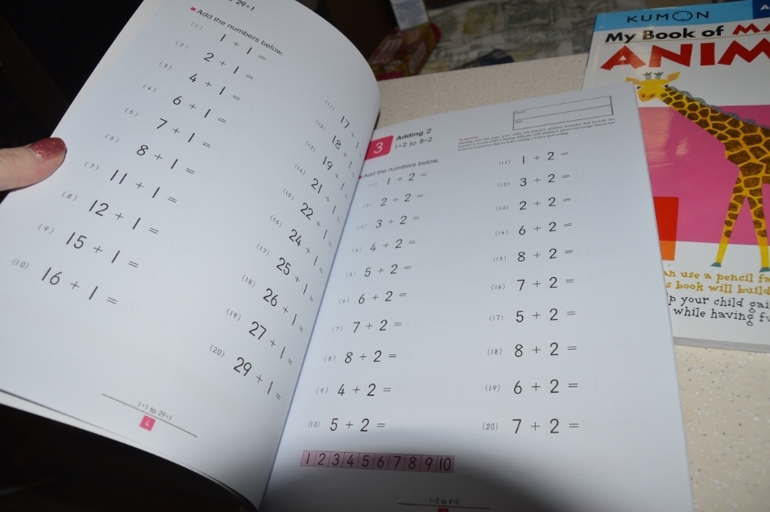 29+1
Add the numbers below.
(1) 1 + 1 =
(2) 2 + 1 =
(3) 4 + 1 =
(4) 6 + 1 =
(5) 7 + 1 =
(6) 8 + 1 =
(7) 11 + 1 =
(8) 12 + 1 =
(9) 15 + 1 =
(10) 16 + 1 =
(11) 17 + 1
(12) 18 + 1
(13) 19 + 1
(14) 21 + 1
(15) 22 + 1
(16) 24 + 1
(17) 25 + 1
(18) 26 + 1 =
(19) 27 + 1 =
(20) 29 + 1 =
1+1 to 29+1
4
3
Adding 2
1+2 to 8+2
Add the numbers below.
(1) 1 + 2 =
(2) 2 + 2 =
(3) 3 + 2 =
(4) 4 + 2 =
(5) 5 + 2 =
(6) 6 + 2 =
(7) 7 + 2 =
(8) 8 + 2 =
(9) 4 + 2 =
(10) 5 + 2 =
(11) 1 + 2 =
(12) 3 + 2 =
(13) 2 + 2 =
(14) 6 + 2 =
(15) 8 + 2 =
(16) 7 + 2 =
(17) 5 + 2 =
(18) 8 + 2 =
(19) 6 + 2 =
(20) 7 + 2 =
1 2 3 4 5 6 7 8 9 10
1+2 to 8+2
KUMON
My Book of
ANIM
an use a pencil
book will build
p your child gai
while having f